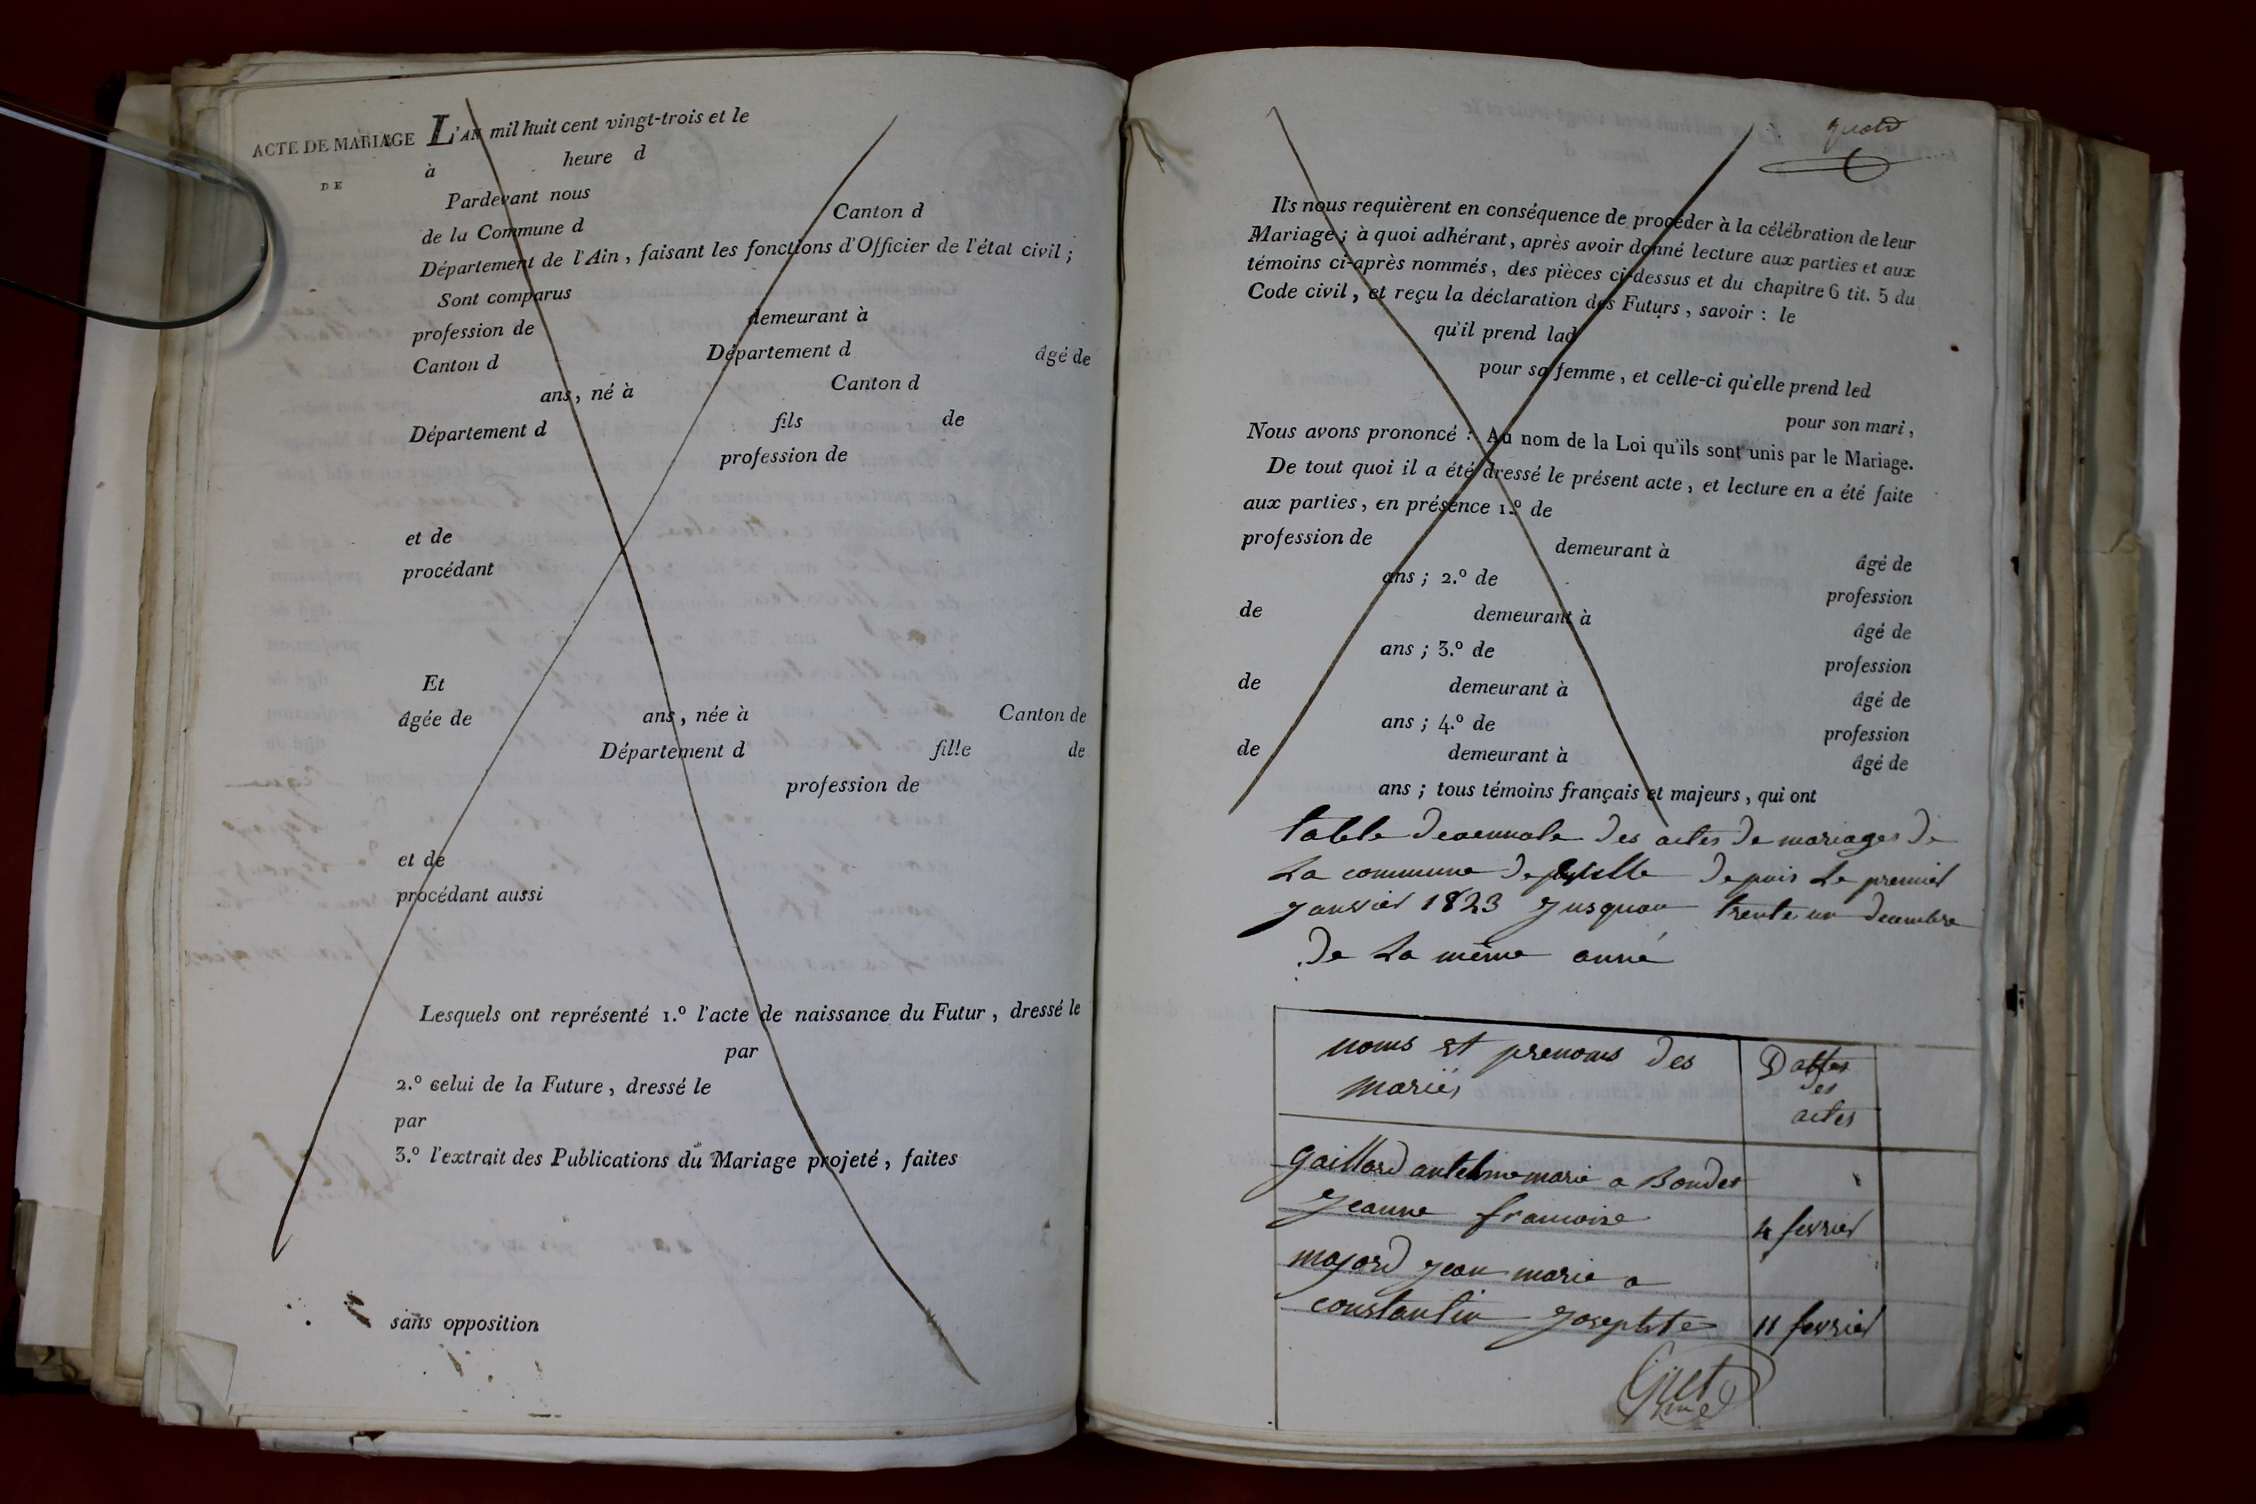 ACTE DE MARIAGE
DE
L'AN mil huit cent vingt-trois et le
à heure d
Pardevant nous
de la Commune d Canton d
Département de l'Ain, faisant les fonctions d'Officier de l'état civil;
Sont comparus
profession de demeurant à
Canton d Département d âgé de
ans, né à Canton d
Département d fils de
profession de
et de
procédant
Et
âgée de ans, née à Canton de
Département d fille de
profession de
et de
procédant aussi
Lesquels ont représenté 1.º l'acte de naissance du Futur, dressé le
par
2.º celui de la Future, dressé le
par
3.º l'extrait des Publications du Mariage projeté, faites
sans opposition
Ils nous requièrent en conséquence de procéder à la célébration de leur
Mariage; à quoi adhérant, après avoir donné lecture aux parties et aux
témoins ci-après nommés, des pièces ci-dessus et du chapitre 6 tit. 5 du
Code civil, et reçu la déclaration des Futurs, savoir: le
qu'il prend lad
pour sa femme, et celle-ci qu'elle prend led
pour son mari,
Nous avons prononcé: Au nom de la Loi qu'ils sont unis par le Mariage.
De tout quoi il a été dressé le présent acte, et lecture en a été faite
aux parties, en présence 1.º de
profession de demeurant à âgé de
ans; 2.º de profession
de demeurant à âgé de
ans; 3.º de profession
de demeurant à âgé de
ans; 4.º de profession
de demeurant à âgé de
ans; tous témoins français et majeurs, qui ont
table decennale des actes de mariages de
La commune de depuis Le premier
Janvier 1823 Jusquau trente un decembre
De La même anné
noms et prenoms des mariés
Dattes des actes
gaillard antelme marie a Bondet
Jeanne francoise 4 fevrier
majord jean marie a
constantin Josephte 11 fevrier